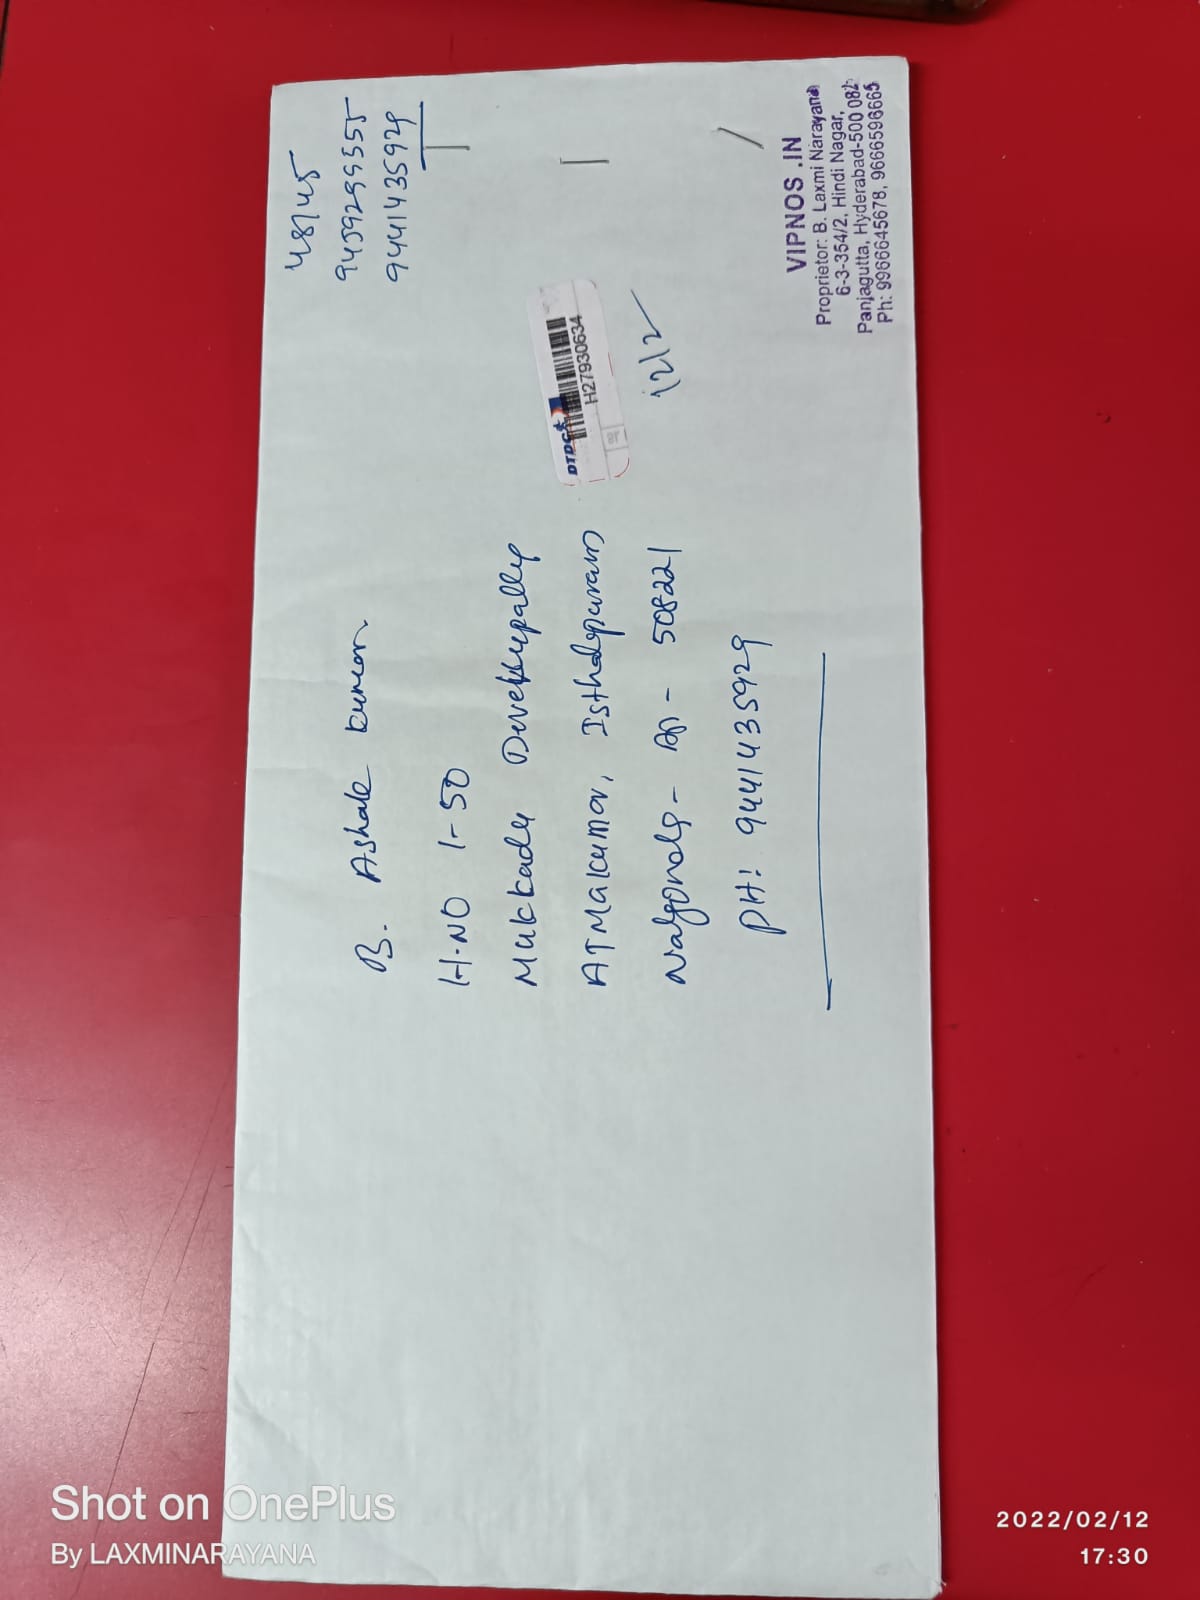 48145
9459299555
9441435929
B. Ashok Kumar
H.NO 1-50
Mukkadu Devekupally
ATMakumor, Isthalapuram
Nalgonda - AP - 508221
PH: 9441435929
DTDC
H27930634
12/2
VIPNOS .IN
Proprietor: B. Laxmi Narayana
6-3-354/2, Hindi Nagar,
Panjagutta, Hyderabad-500 082
Ph: 9966645678, 9666598665
Shot on OnePlus
By LAXMINARAYANA
2022/02/12
17:30